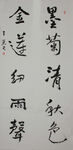 墨菊清秋色
金蓮細雨聲